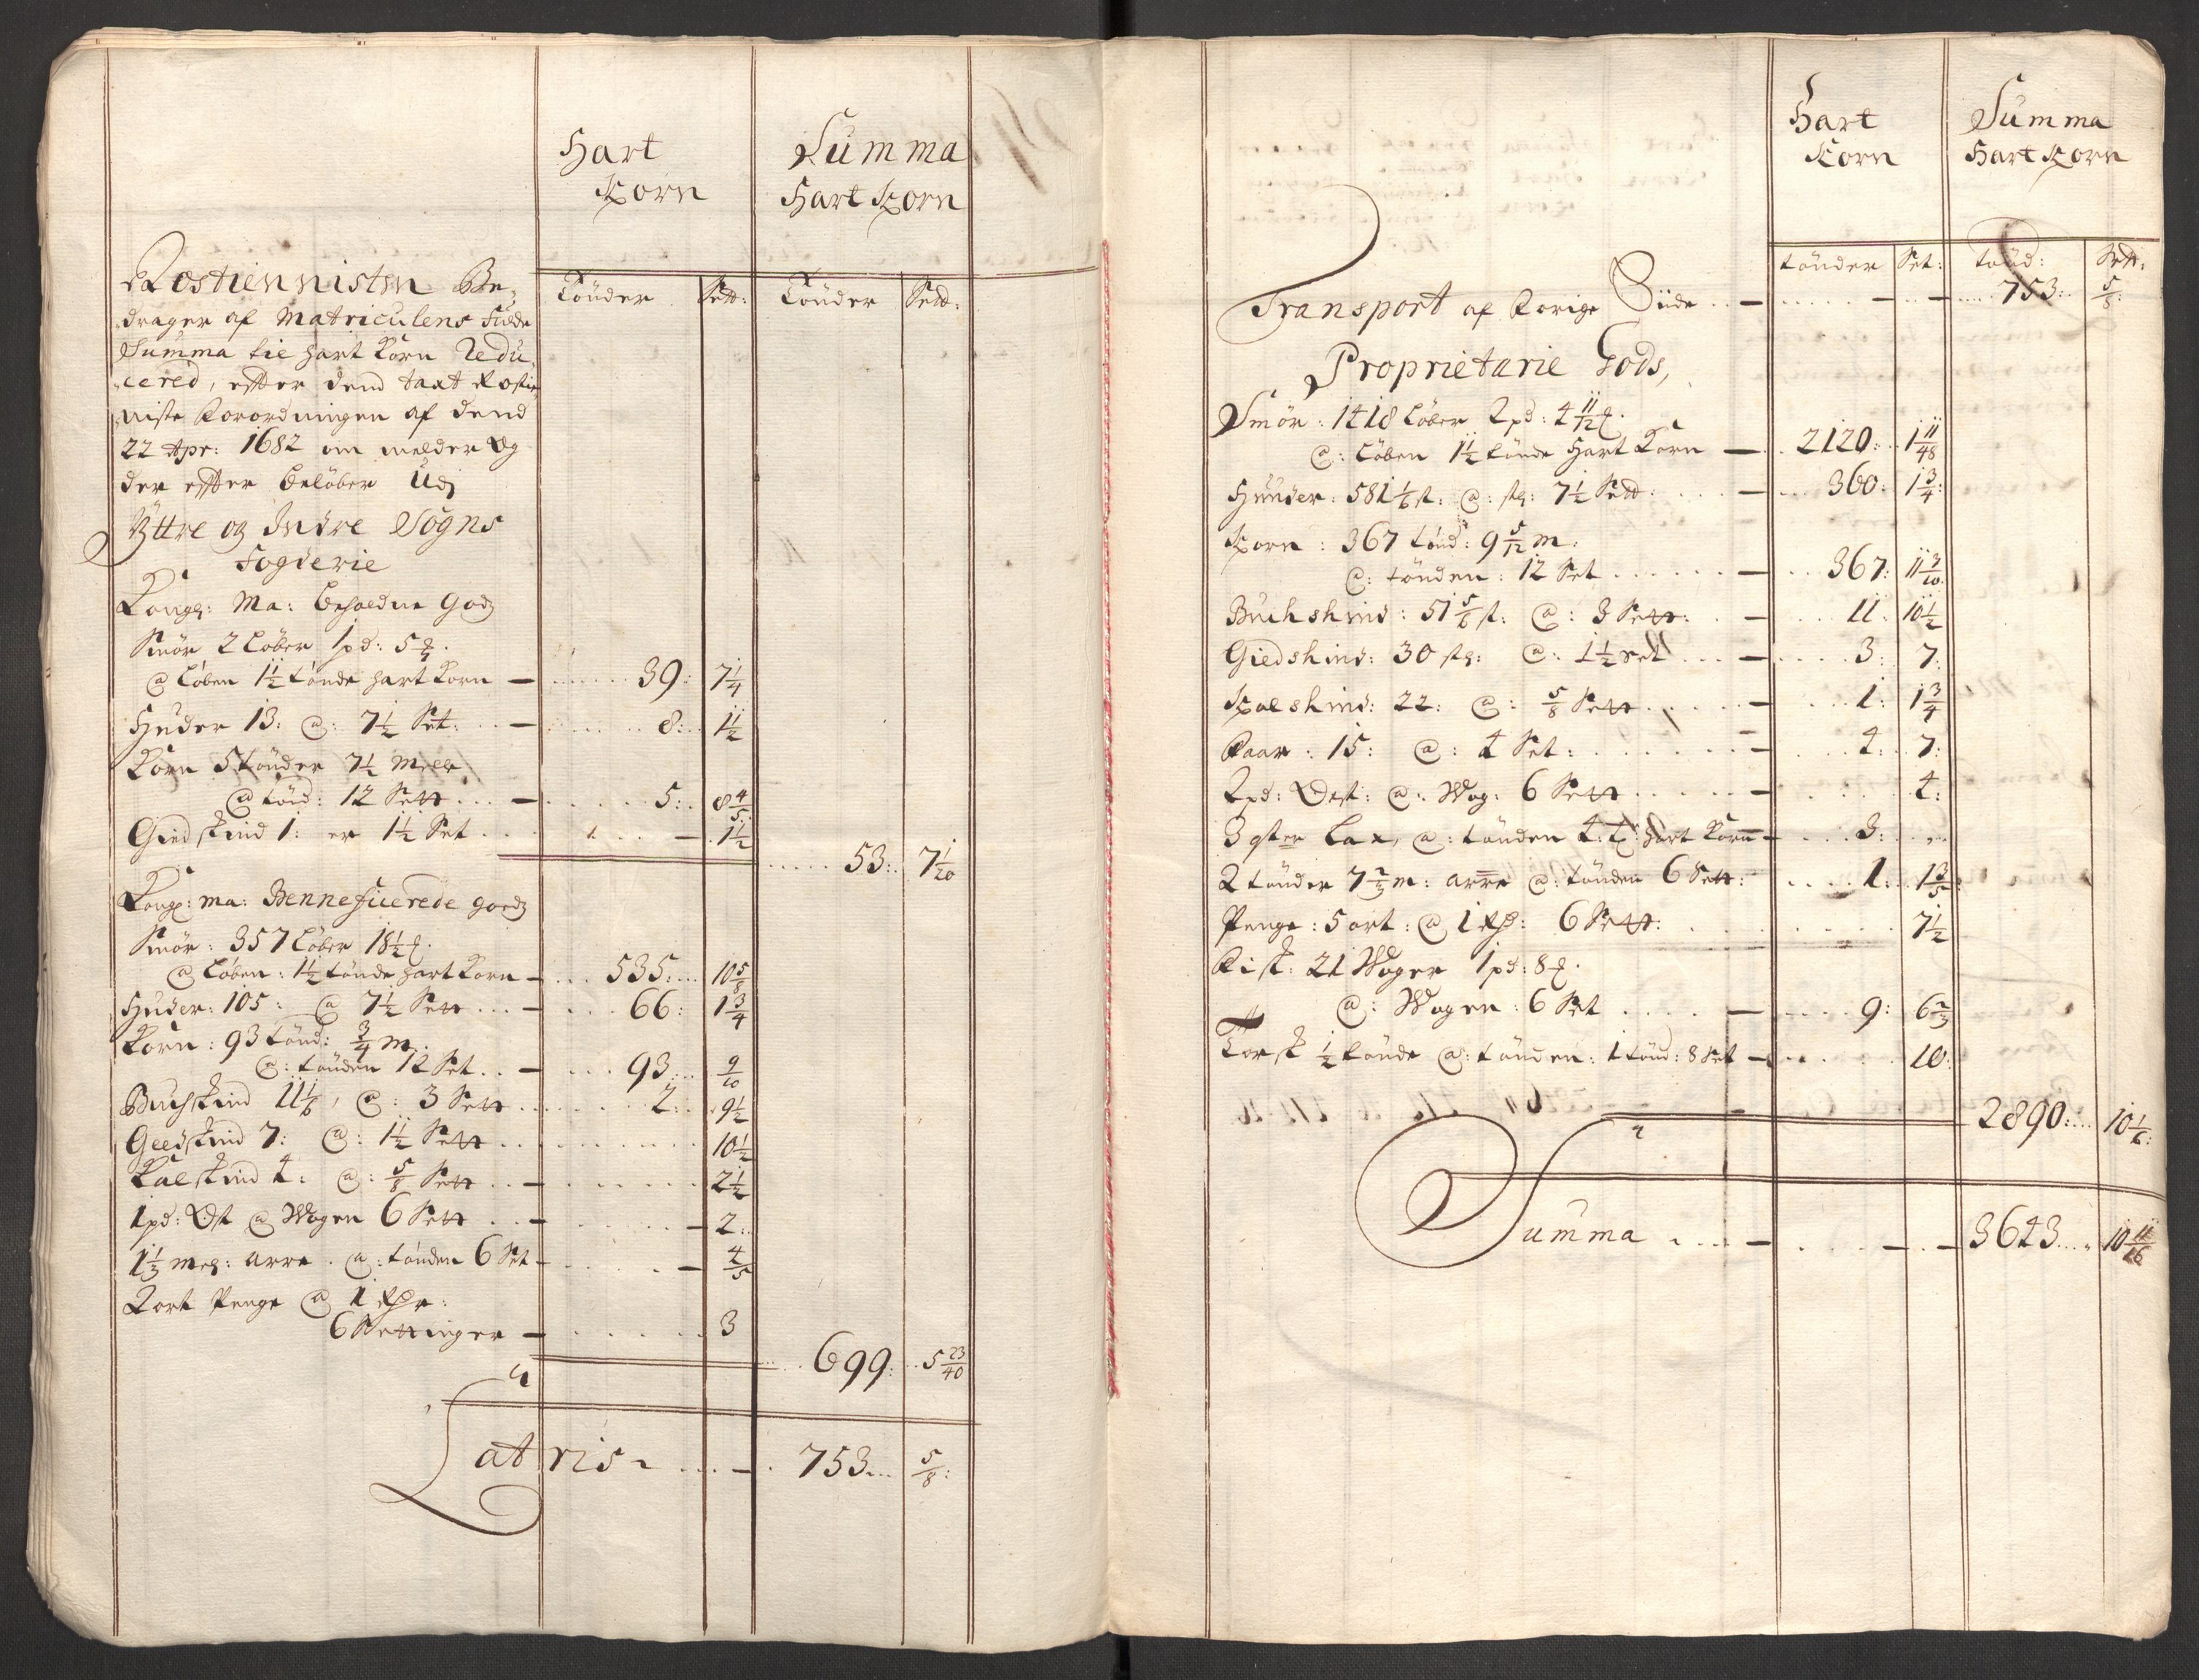 Hart Korn
Summa Hart Korn
Rostiennisten Be-
drager af Matriculens Fulde
Summa til hart Korn Redu-
cered, effter dend taxt Rostie-
niste Forordningen af dend
22 Apr: 1682 om melder Og
der effter beløber Udj
Yttre og Indre Sogns
Fogderie
Tönder Sett: Tönder Sett:
Kongl: Ma: beholdne Godz
Smör 2 Löber 1 pd: 5
@ Löben 1½ tönde hart Korn — 39: 7¼
Huder 13: @: 7½ Set: — 8: 1½
Korn 5 tönder 7½ Meler
@ tönd: 12 Sett — 5: 8 4/5
Giedskind 1: er 1½ Set — 1½
53: 7 1/20
Kongl: ma: Bennefficerede goedz
Smör: 357 Löber 18½
@ Löben: 1½ tönde hart Korn — 535: 10 5/8
Huder: 105: @ 7½ Sett — 66: 1¾
Korn: 93 tönd: ¾ m.
@: tönden 12 Set — 93: 9/10
Buchskind 11 1/6, @: 3 Sett — 2: 9½
Geedskind 7: @: 1½ Sett — 10½
Kalskind 4: @: 5/8 Sett — 2½
1 pd: Ost @ Wogen 6 Sett — 2:
1⅓ mel: arre @: tönden 6 Set — 4/5
2 ort Penge @ 1 Rdr:
6 Settinger — 3
699: 5 23/40
Latris 753 5/8:
Hart Korn
Summa Hart Korn
tönder Set: tönd: Sett:
Transport af Forige Siide — 753: 5/8:
Proprietarie Gods,
Smör: 1418 Löber 2 pd: 4 11/12
@: Löben 1½ tönde Hart Korn — 2120: 1 11/48
Huuder: 581 1/6 st: @: stk: 7½ Sett: — 360: 1¾:
Korn: 367 tönd: 9 5/12 m:
@: tönden: 12 Set — 367: 11 3/10
Buchshind: 51 5/6 st: @: 3 Sett: — 11: 10½
Giedshind: 30 stk: @: 1½ Set — 3: 7:
Kaleshind: 22: @: 5/8 Sett — 1: 1¾
Faar: 15: @: 4 Set: — 4: 7:
2 pd: Ost: @: Wog: 6 Sett — 4:
3 qster Lax, @: tönden 4: t: hart Korn — 3:
2 tönder 7⅔ m: arre @: tönden 6 Sett: 1: 1 3/5
Penge: 5 ort: @ 1 Rd: 6 Sett: 7½
Fisk: 21 Woger 1 pd: 8
@: Wogen: 6 Set — 9: 6⅔
Torsk ½ tönde @: tönden: 1 tönd: 8 Set — 10:
2890: 10 1/6:
Summa — 3643 10 11/16